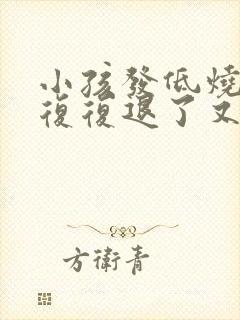 小孩發低燒
復復退了又
方衛青